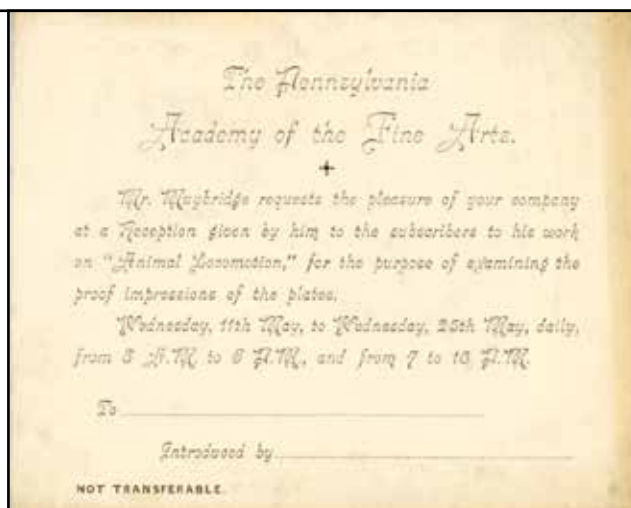 The Pennsylvania
Academy of the Fine Arts.
Mr. Muybridge requests the pleasure of your company
at a Reception given by him to the subscribers to his work
on "Animal Locomotion," for the purpose of examining the
proof impressions of the plates.
Wednesday, 11th May, to Wednesday, 25th May, daily,
from A.M. to 6 P.M., and from 7 to 10 P.M.
To
Introduced by
NOT TRANSFERABLE.